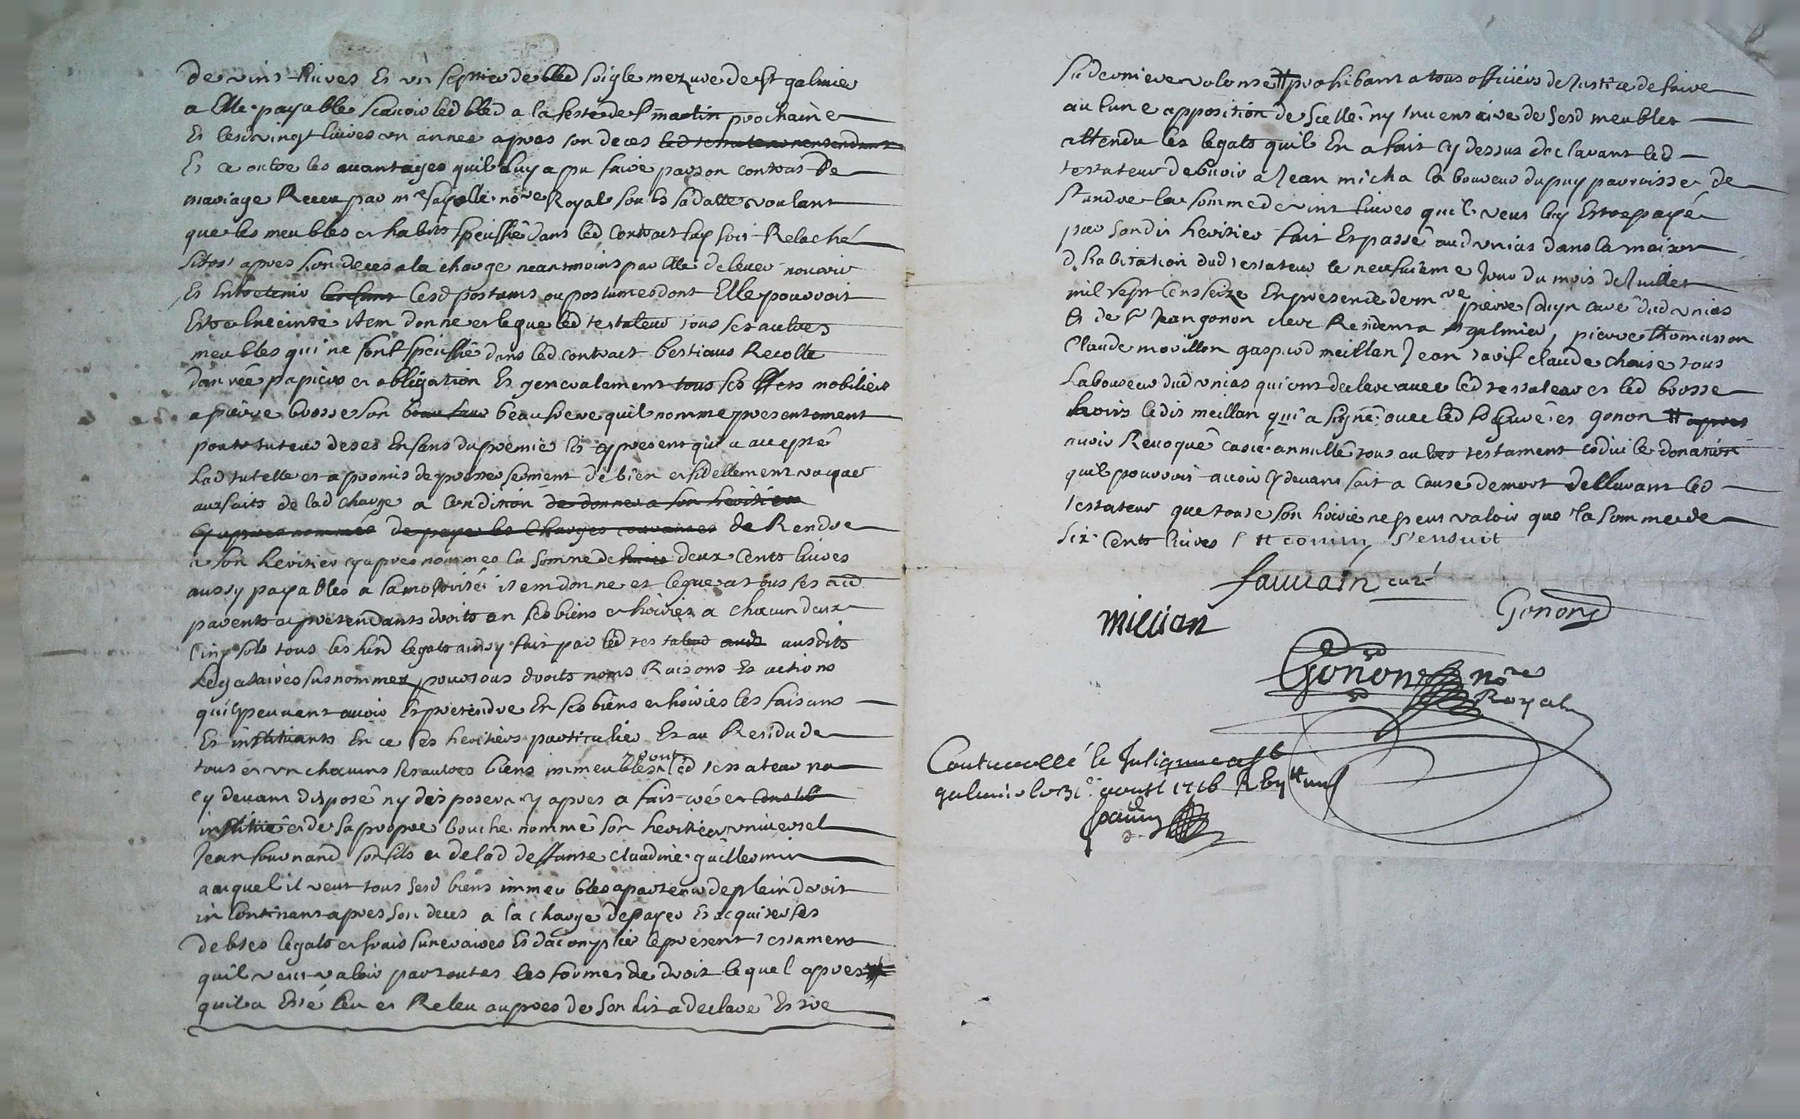 de vint livres et un septier de bled seigle mezure de st galmier
a elle payable scavoir led bled a la feste de st martin prochaine
et lesd vingt livres un année apres son deces led testateur
et ce outre les avantages quil luy a pu faire par son contrat de
mariage Receu par mr fayolle no re Royal sous sa datte voulant
que les meubles et habits speciffié dans led contrat luy soit Relaché
sitost apres son deces a la charge neantmoins par elle delever nourrir
et entretenir les enfans lesd postums ou postumes dont Elle pourroit
Estre enceinte item donne et legue led testateur tous ses autres
meubles qui ne sont speciffié dans led contract bestiaux Recolte
danrée papiers et obligation Et generalement tous ses effets mobiliers
a pierre brosse son beau frere quil nomme presentement
pour tuteur de ses Enfans du premie lit cy present qui a accepté
lad tutelle et a promis de preste serment de bien et fidellement vacquer
aux faits de lad charge a condition de donner a son heritier
cy apres nommée de payer les charges de Rendre
a son heritier cy apres nommeo la somme de deux cents livres
aussy payables a sa majorité item donne et legue a tous ses au
parents et pretendants droits en ses biens et hoirie a chacun deux
cinq sols tous lesd legats ainsy fait par led testateur ausdits
Legataires susnommez pour tous droits noms Raisons Et actions
quils peuvent avoir Et pretendre En ses biens et hoiries les faisans
Et instituants En ce ses heritiers particulier Et au Residu de
tous et un chacuns ses autres biens immeubles dont led testateur na
cy devant disposé ny disposera cy apres a fait crée et
institué et de sa propre bouche nommé son heritier universel
Jean fournand son fils et de lad deffunte claudine guillermin
auquel il veut tous sesd biens immeubles apartenir de plein droit
incontinant apres son deces a la charge de payer Et acquiter ses
debtes legats et frais funeraires Et dacomplir le present testament
quil veut valoir par toutes les formes de droit lequel apres
quil a Esté leu et Releu aupres de son lit a declaré Estre
sa derniere volonté prohibant a tous officiers de Justice de faire
aucune apposition de scellé ny inventaire de sesd meubles
attendu les legats quil En a fait cy dessus declarant led
testateur debvoir a Jean micha laboureur du puy parroisse de
st andre la somme de vint livres quil veut luy Estre payé
par sondit heritier fait Et passé aud unias dans la maison
dhabitation dud testateur le neufuieme Jour du mois de Juillet
mil sept cens seize En presence de mre pierre curé dud unias
Et de sr Jean gonon clerc Residents a st galmier, pierre thomasson
Claude mouillon gaspard meillan Jean ravit claude chaise tous
Laboureur dud unias qui ont declaré avec led testateur et led brosse
lesdit meillan qui a signé avec led sr curé et gonon apres
avoir Revoqué cassé annullé tous autres testament codicile donation
quil pouvoit avoir cy devant fait a cause de mort declarant led
testateur que toute son hoirie ne peut valoir que la somme de
six cents livres s'ensuit
curé
millian
Gonon
Gonon nore
Royal
Contrerollé le
galmier le 31e aout 1716